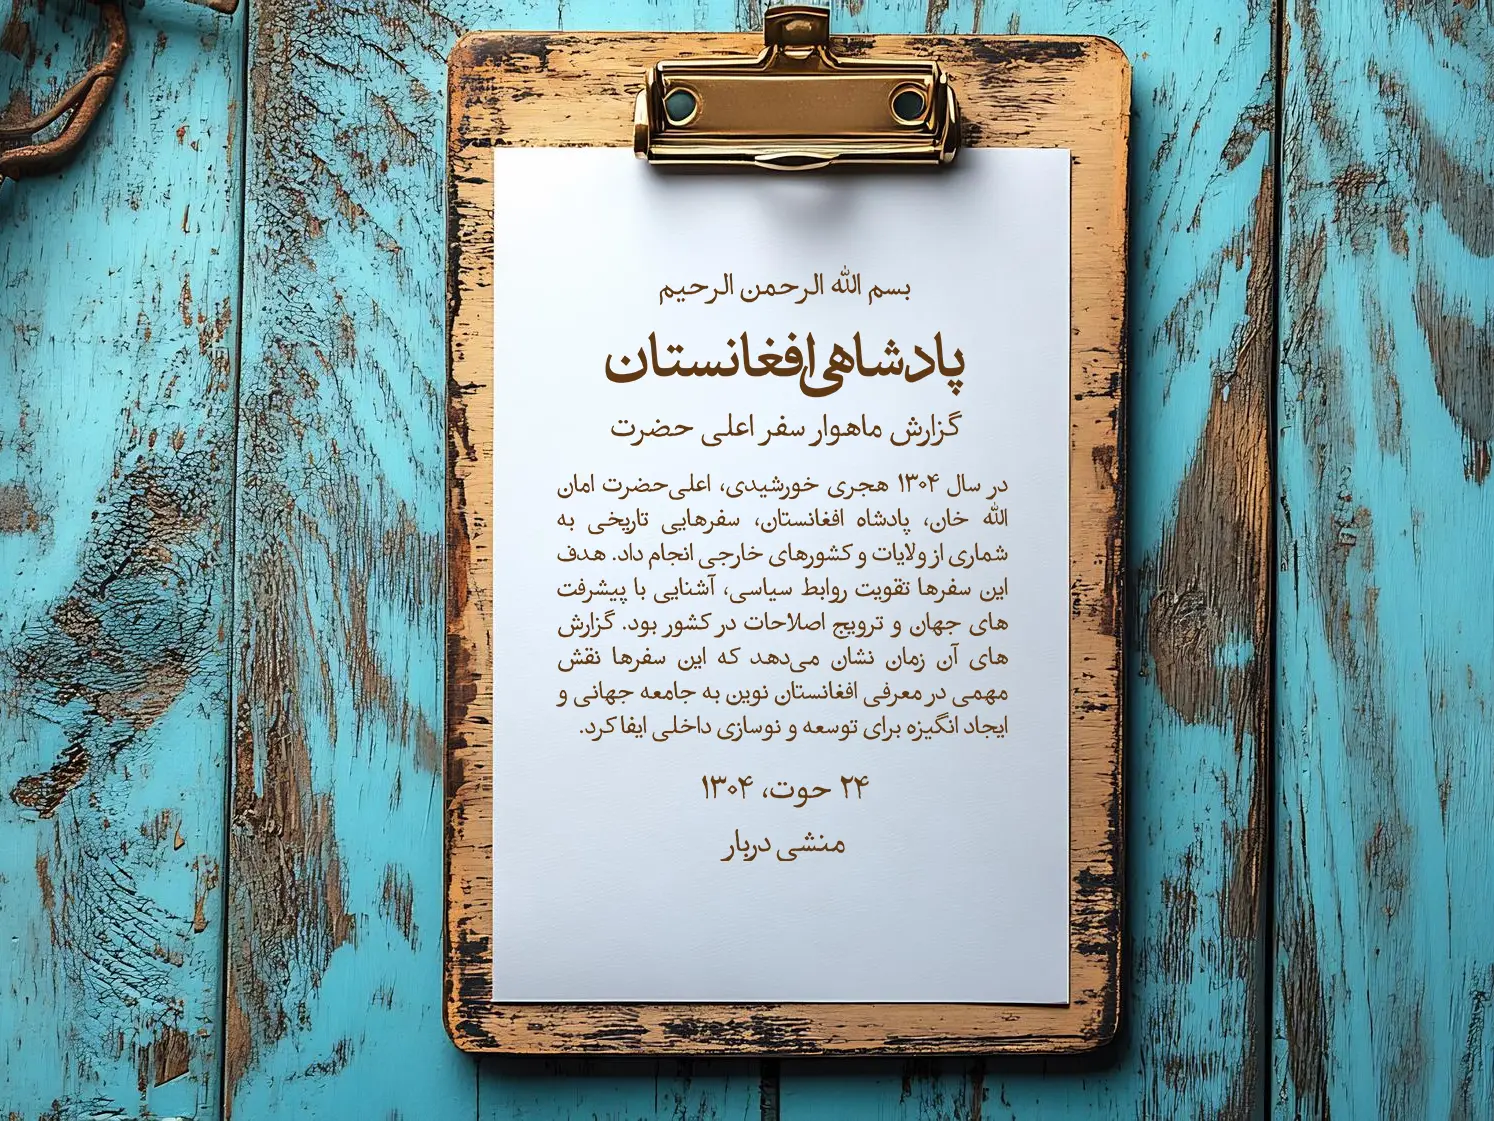 بسم الله الرحمن الرحیم
پادشاهی افغانستان
گزارش ماهوار سفر اعلی حضرت
در سال ۱۳۰۴ هجری خورشیدی، اعلی‌حضرت امان
الله خان، پادشاه افغانستان، سفرهایی تاریخی به
شماری از ولایات و کشورهای خارجی انجام داد. هدف
این سفرها تقویت روابط سیاسی، آشنایی با پیشرفت
های جهان و ترویج اصلاحات در کشور بود. گزارش
های آن زمان نشان می‌دهد که این سفرها نقش
مهمی در معرفی افغانستان نوین به جامعه جهانی و
ایجاد انگیزه برای توسعه و نوسازی داخلی ایفا کرد.
۲۴ حوت، ۱۳۰۴
منشی دربار